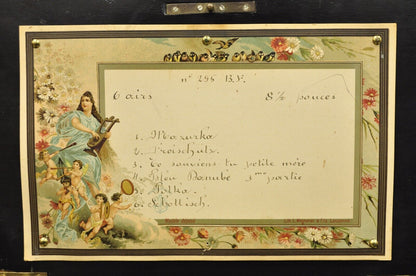 n° 286 B.V.
6 airs 8½ pouces
1. Mazurka
2. Freischutz
3. Te souviens tu petite mère !
4. Bleu Danube 3me partie
5. Polka
6. Schottisch